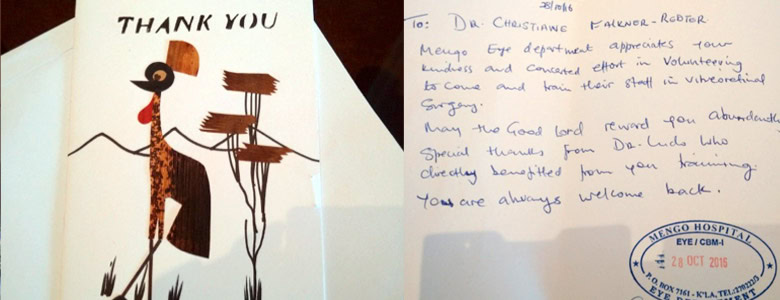 THANK YOU
28/10/16
To: DR. CHRISTIANE FALKNER-RADTER
Mengo Eye department appreciates your
kindness and concerted effort in volunteering
to come and train their staff in vitreoretinal
Surgery.
May the Good lord reward you abundantly
Special thanks from Dr. Ludo who
directly benefitted from you training.
You are always welcome back.
MENGO HOSPITAL
EYE / CBM-I
28 OCT 2016
P.O. BOX 7161 - K'LA, TEL:
EYE